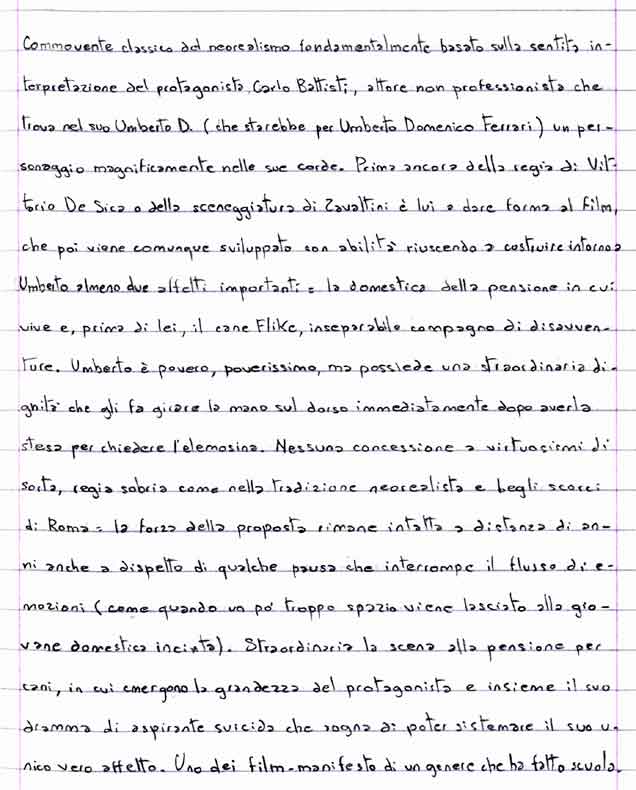 Commovente classico del neorealismo fondamentalmente basato sulla sentita in-
terpretazione del protagonista Carlo Battisti, attore non professionista che
trova nel suo Umberto D. (che starebbe per Umberto Domenico Ferrari) un per-
sonaggio magnificamente nelle sue corde. Prima ancora della regia di Vit-
torio De Sica o della sceneggiatura di Zavattini è lui a dare forma al film,
che poi viene comunque sviluppato con abilità riuscendo a costruire intorno a
Umberto almeno due affetti importanti: la domestica della pensione in cui
vive e, prima di lei, il cane Flike, inseparabile compagno di disavven-
ture. Umberto è povero, poverissimo, ma possiede una straordinaria di-
gnità che gli fa girare la mano sul dorso immediatamente dopo averla
stesa per chiedere l'elemosina. Nessuna concessione a virtuosismi di
sorta, regia sobria come nella tradizione neorealista e begli scorci
di Roma: la forza della proposta rimane intatta a distanza di an-
ni anche a dispetto di qualche pausa che interrompe il flusso di e-
mozioni (come quando un po' troppo spazio viene lasciato alla gio-
vane domestica incinta). Straordinaria la scena alla pensione per
cani, in cui emergono la grandezza del protagonista e insieme il suo
dramma di aspirante suicida che sogna di poter sistemare il suo u-
nico vero affetto. Uno dei film-manifesto di un genere che ha fatto scuola.